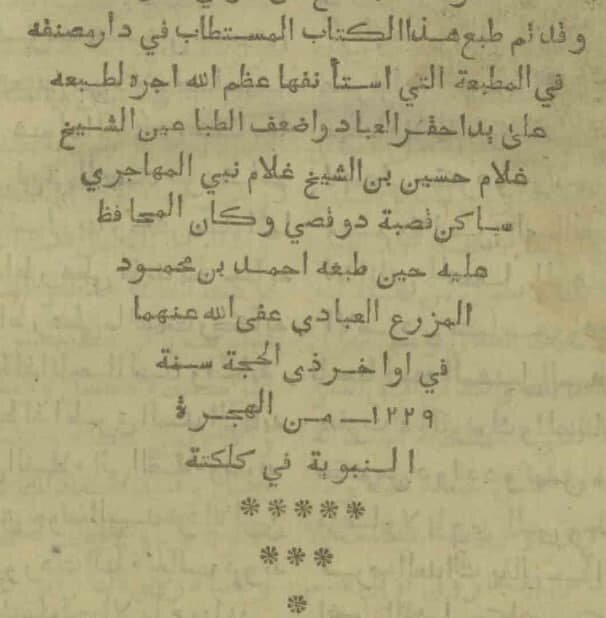 وقد تم طبع هذا الكتاب المستطاب في دار مصنفه
في المطبعة التي استأ نفها عظم الله اجره لطبعه
على يد احقر العباد واضعف الطبا عين الشيخ
غلام حسين بن الشيخ غلام نبي المهاجري
ساكن قصبة دو قصي وكان المحافظ
عليه حين طبعه احمد بن محمود
المزرع العبادي عفى الله عنهما
في اواخر ذى الحجة سنة
١٢٢٩ من الهجرة
النبوية في كلكتة
*****
***
*